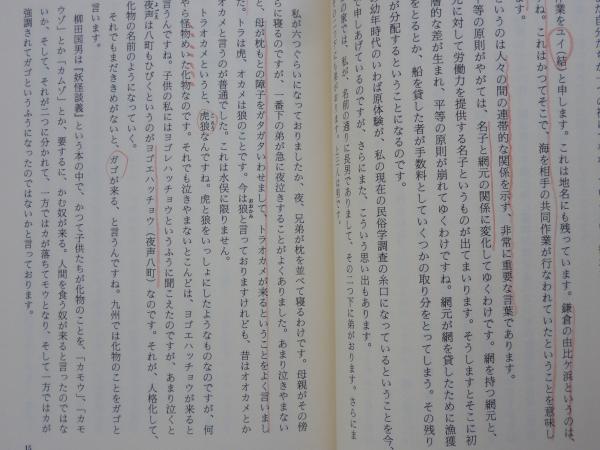 業をユイ結と申します。これは地名にも残っています。鎌倉の由比ケ浜というのは、
ね。これはかつてそこで、海を相手の共同作業が行なわれていたということを意味し
いうのは人々の間の連帯的な関係を示す、非常に重要な言葉であります。
等の原則がやがては、名子と網元の関係に変化してゆくわけです。網を持つ網元と、
元に対して労働力を提供する名子というものが出てまいります。そうしますとそこに初
層的な差が生まれ、平等の原則が崩れてゆくわけですね。網元が網を貸したために漁獲
をとるとか、船を貸した者が手数料としていくつかの取り分をとってしまう。その残り
が分配するということになるのです。
幼年時代のいわば原体験が、私の現在の民俗学調査の糸口になっているということを今、
で申しあげているのですが、さらにまた、こういう思い出もあります。
の家では、私が、名前の通りに長男でありまして、その二つ下に弟がおります。さらにま
私が六つぐらいになっておりましたか、夜、兄弟が枕を並べて寝るわけです。母親がその傍
らに寝るのですが、一番下の弟が急に夜泣きすることがよくありました。あまり泣きやまない
と、母が枕もとの障子をガタガタいわせまして、トラオカメが来るということをよく言いまし
た。トラは虎、オカメは狼のことです。今は狼と言っておりますけれども、昔はオオカメとか
オカメと言うのが普通でした。これは水俣に限りません。
トラオカメというと、虎狼なんですね。虎と狼をいっしょにしたようなものなのですが、何
やら怪物めいた化物なのです。それでも泣きやまないとこんどは、ヨゴエハッチョウが来ると
言うんですね。子供の私にはヨゴレハッチョウというふうに聞こえたのですが、あまり泣くと
夜声は八町もひびくというのがヨゴエハッチョウ（夜声八町）なのです。それが、人格化して、
化物の名前のようになっていく。
それでもまだききめがないと、ガゴが来る、と言うんですね。九州では化物のことをガゴと
言います。
柳田国男は『妖怪談義』という本の中で、かつて子供たちが化物のことを、「カモウ」、「カモ
ウゾ」とか「カムゾ」とか、要するに、かむ奴が来る。人間を食う奴が来ると言ったのではな
いか、そして、それが二つに分かれて、一方ではカが落ちてモウとなり、そして一方ではカが
強調されてガゴというふうになったのではないかと言っております。
15